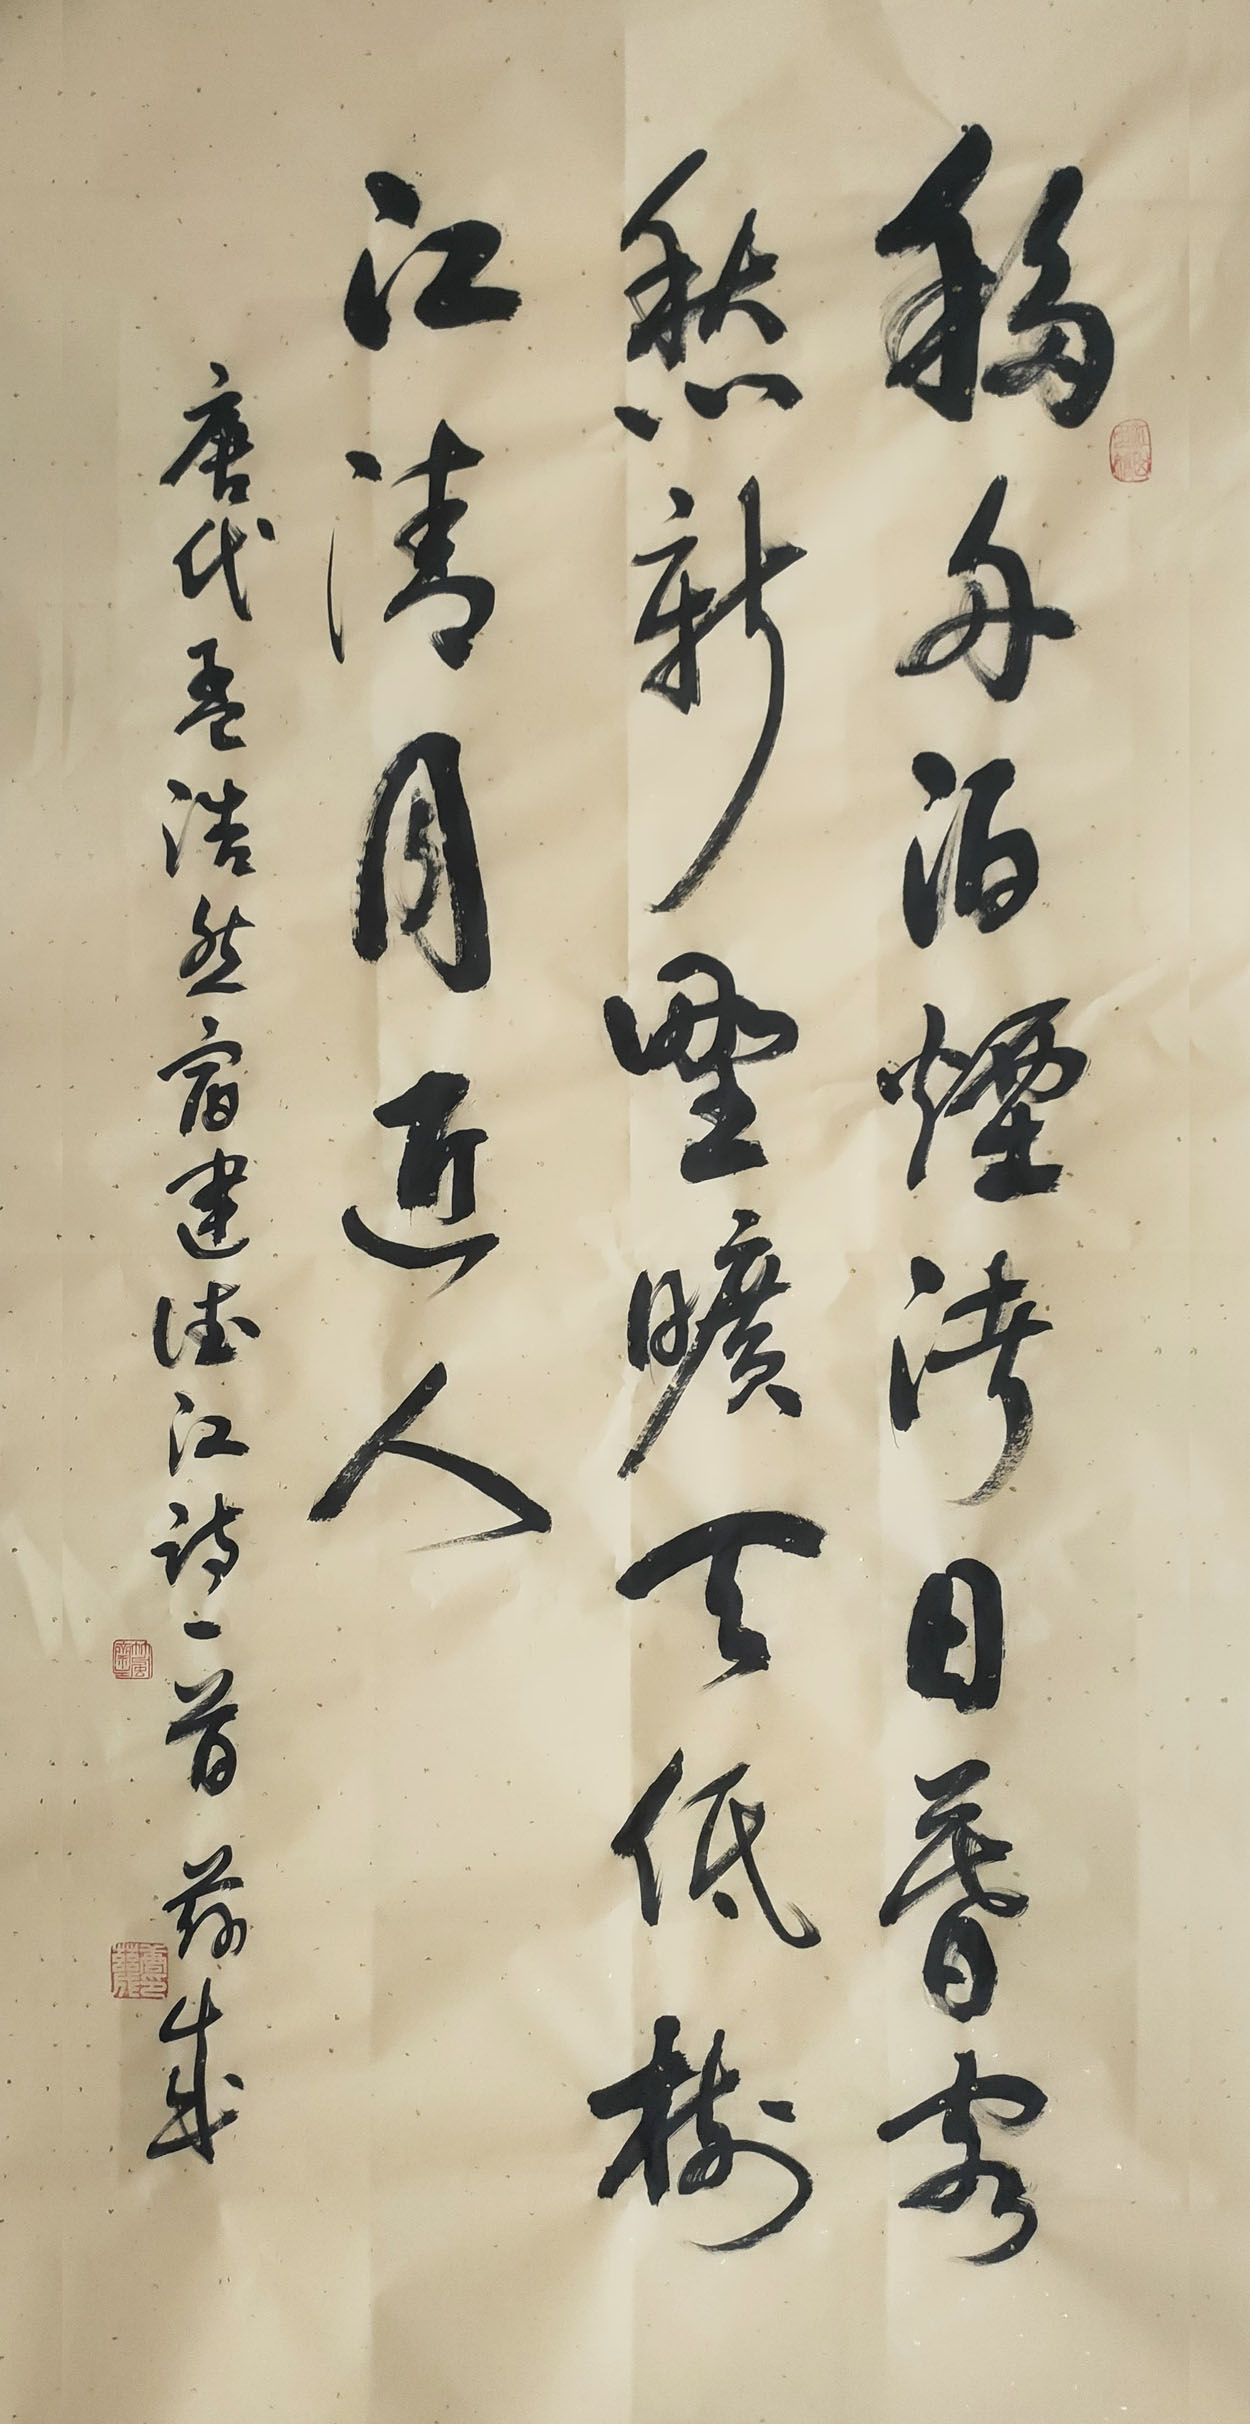 移舟泊煙渚日暮客
愁新野曠天低樹
江清月近人
唐代孟浩然宿建德江詩一首